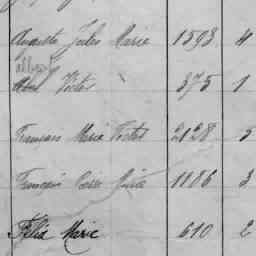 Auguste Jules Marie 1593 4
Victor 375 1
François Marie Victor 2128 5
François Marie 1186 3
Félix Marie 610 2